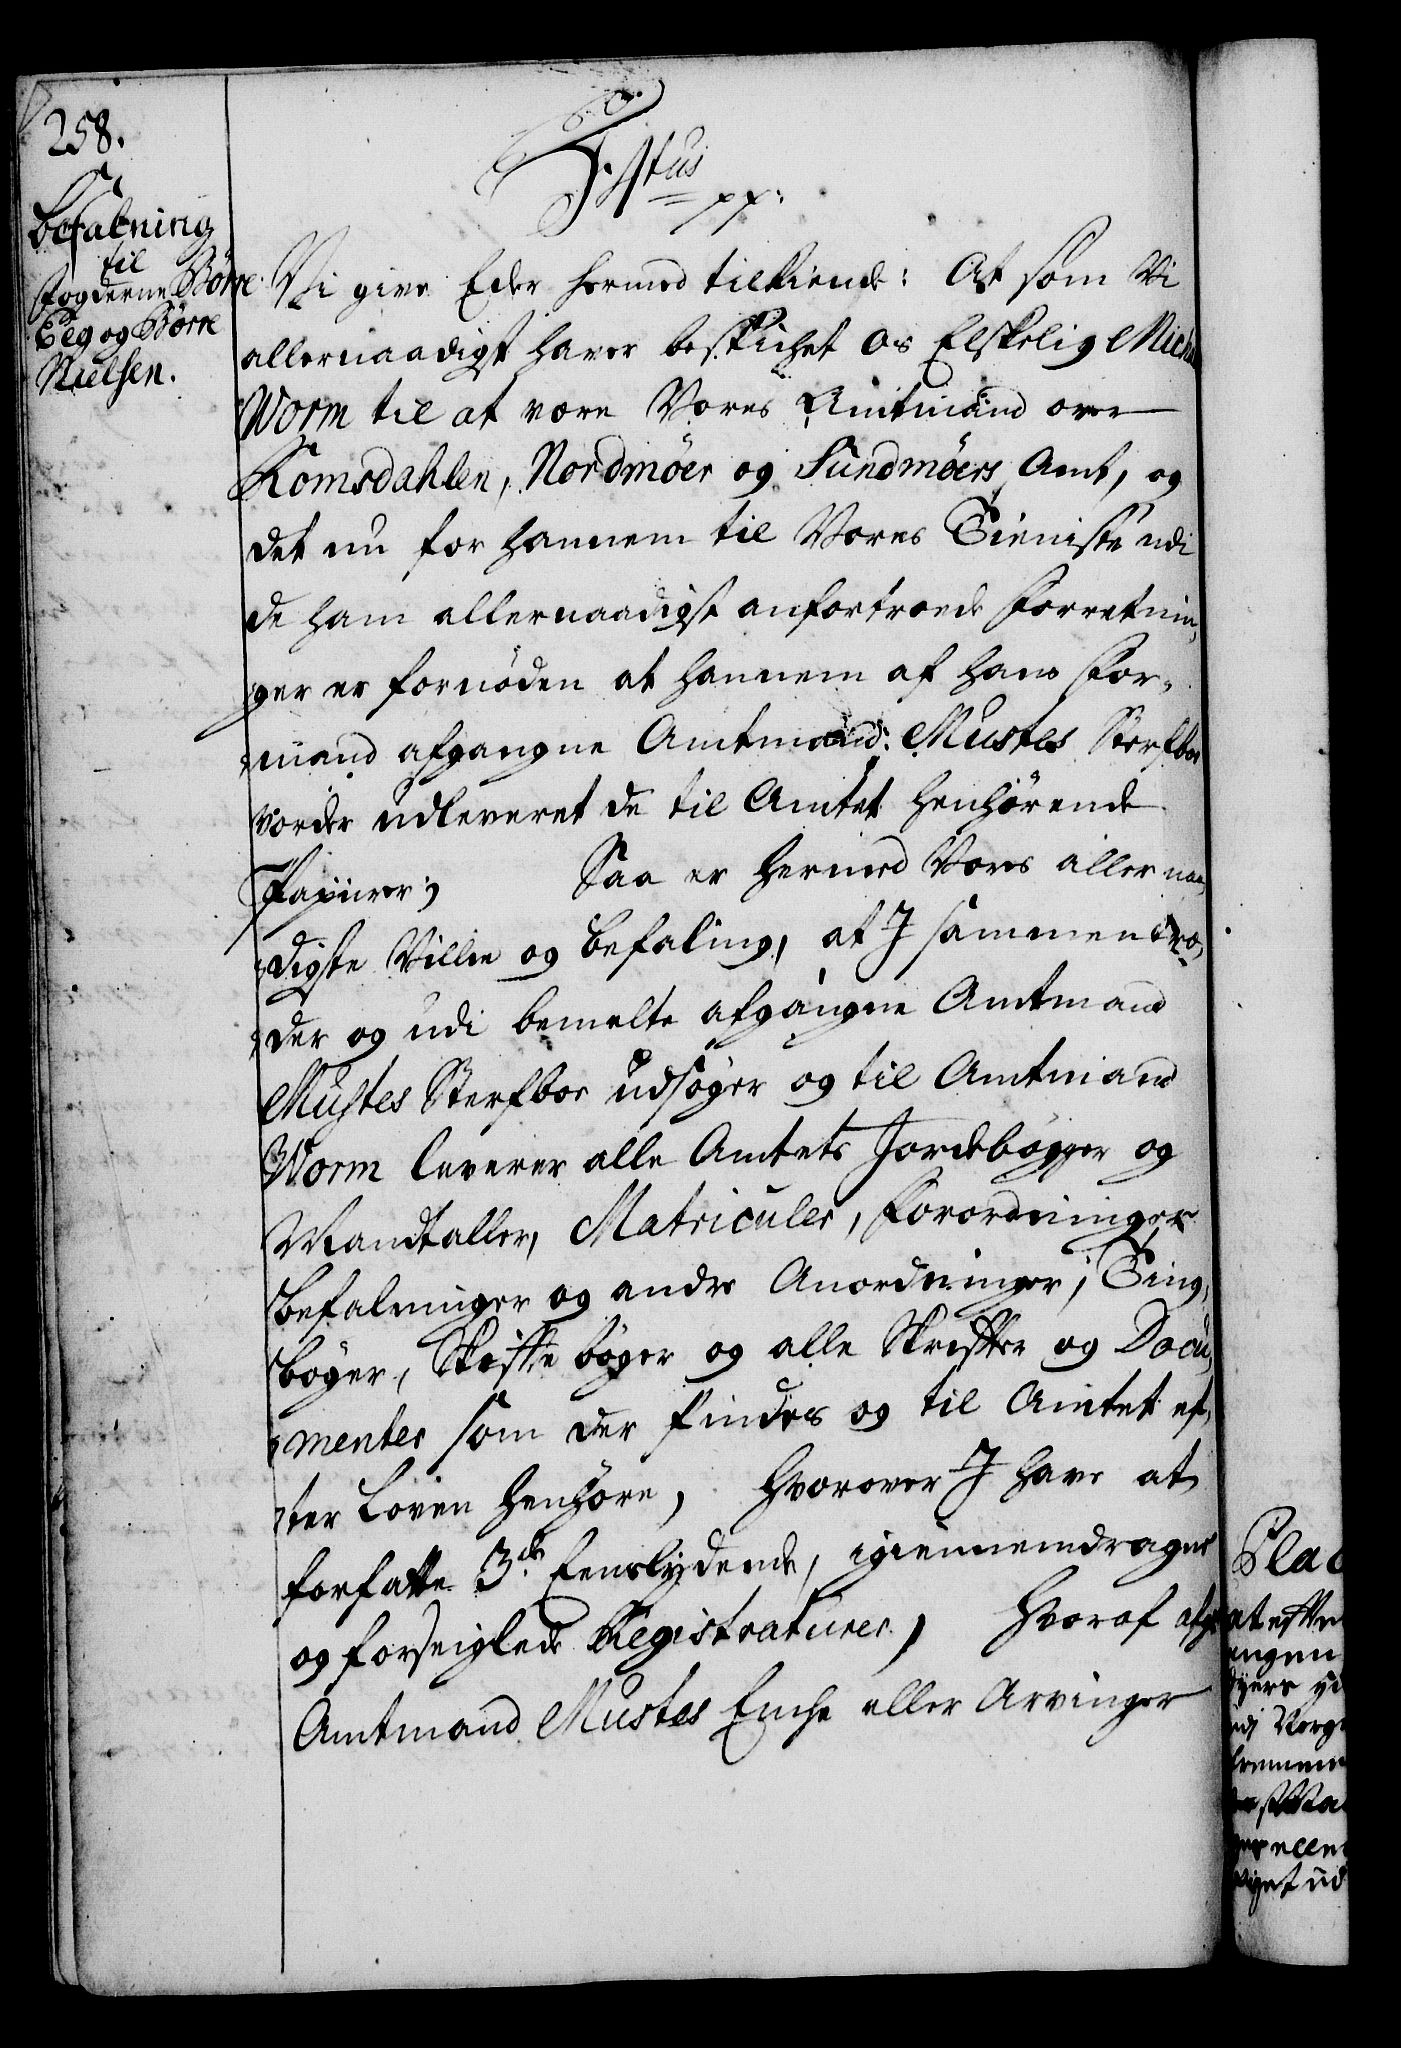 258.
Befalning
til
fogderne Børre
Eeg og Børre
Nielsen.
F. 4tus
pp:
Vi give Eder hermed tilkiende: At som Vi
allernaadigst haver beskicket Os Elskelig Michel
Worm til at være Vores Amtmand over
Romsdahlen, Nordmöer og Sundmöers Amt, og
det nu for hannem til Vores Tieniste udi
de ham allernaadigst anfortroede Forretnin,
ger er fornøden at hannem af hans For,
mand afgangne Amtmand: Mustes Sterfboe
vorder udleveret de til Amtet henhørende
Papiirer; Saa er hermed Vores aller naa,
digste Villie og Befaling, at I sammentræ,
der og udi bemelte afgangne Amtmand
Mustes Sterfboe udsøger og til Amtmand
Worm leverer alle Amtets Jordebøgger og
Mandtaller, Matriculer, Forordninger
Befalninger og andre Anordninger, Ting,
bøger, Skiftebøger og alle Skrifter og Docu,
menter som der findes og til Amtet ef,
ter Loven henhøre, hvorover I have at
forfatte 3de Eenslydende, igiennemdragne
og forseiglede Registraturer, Hvoraf afg:
Amtmand Mustes Enche eller Arvinger